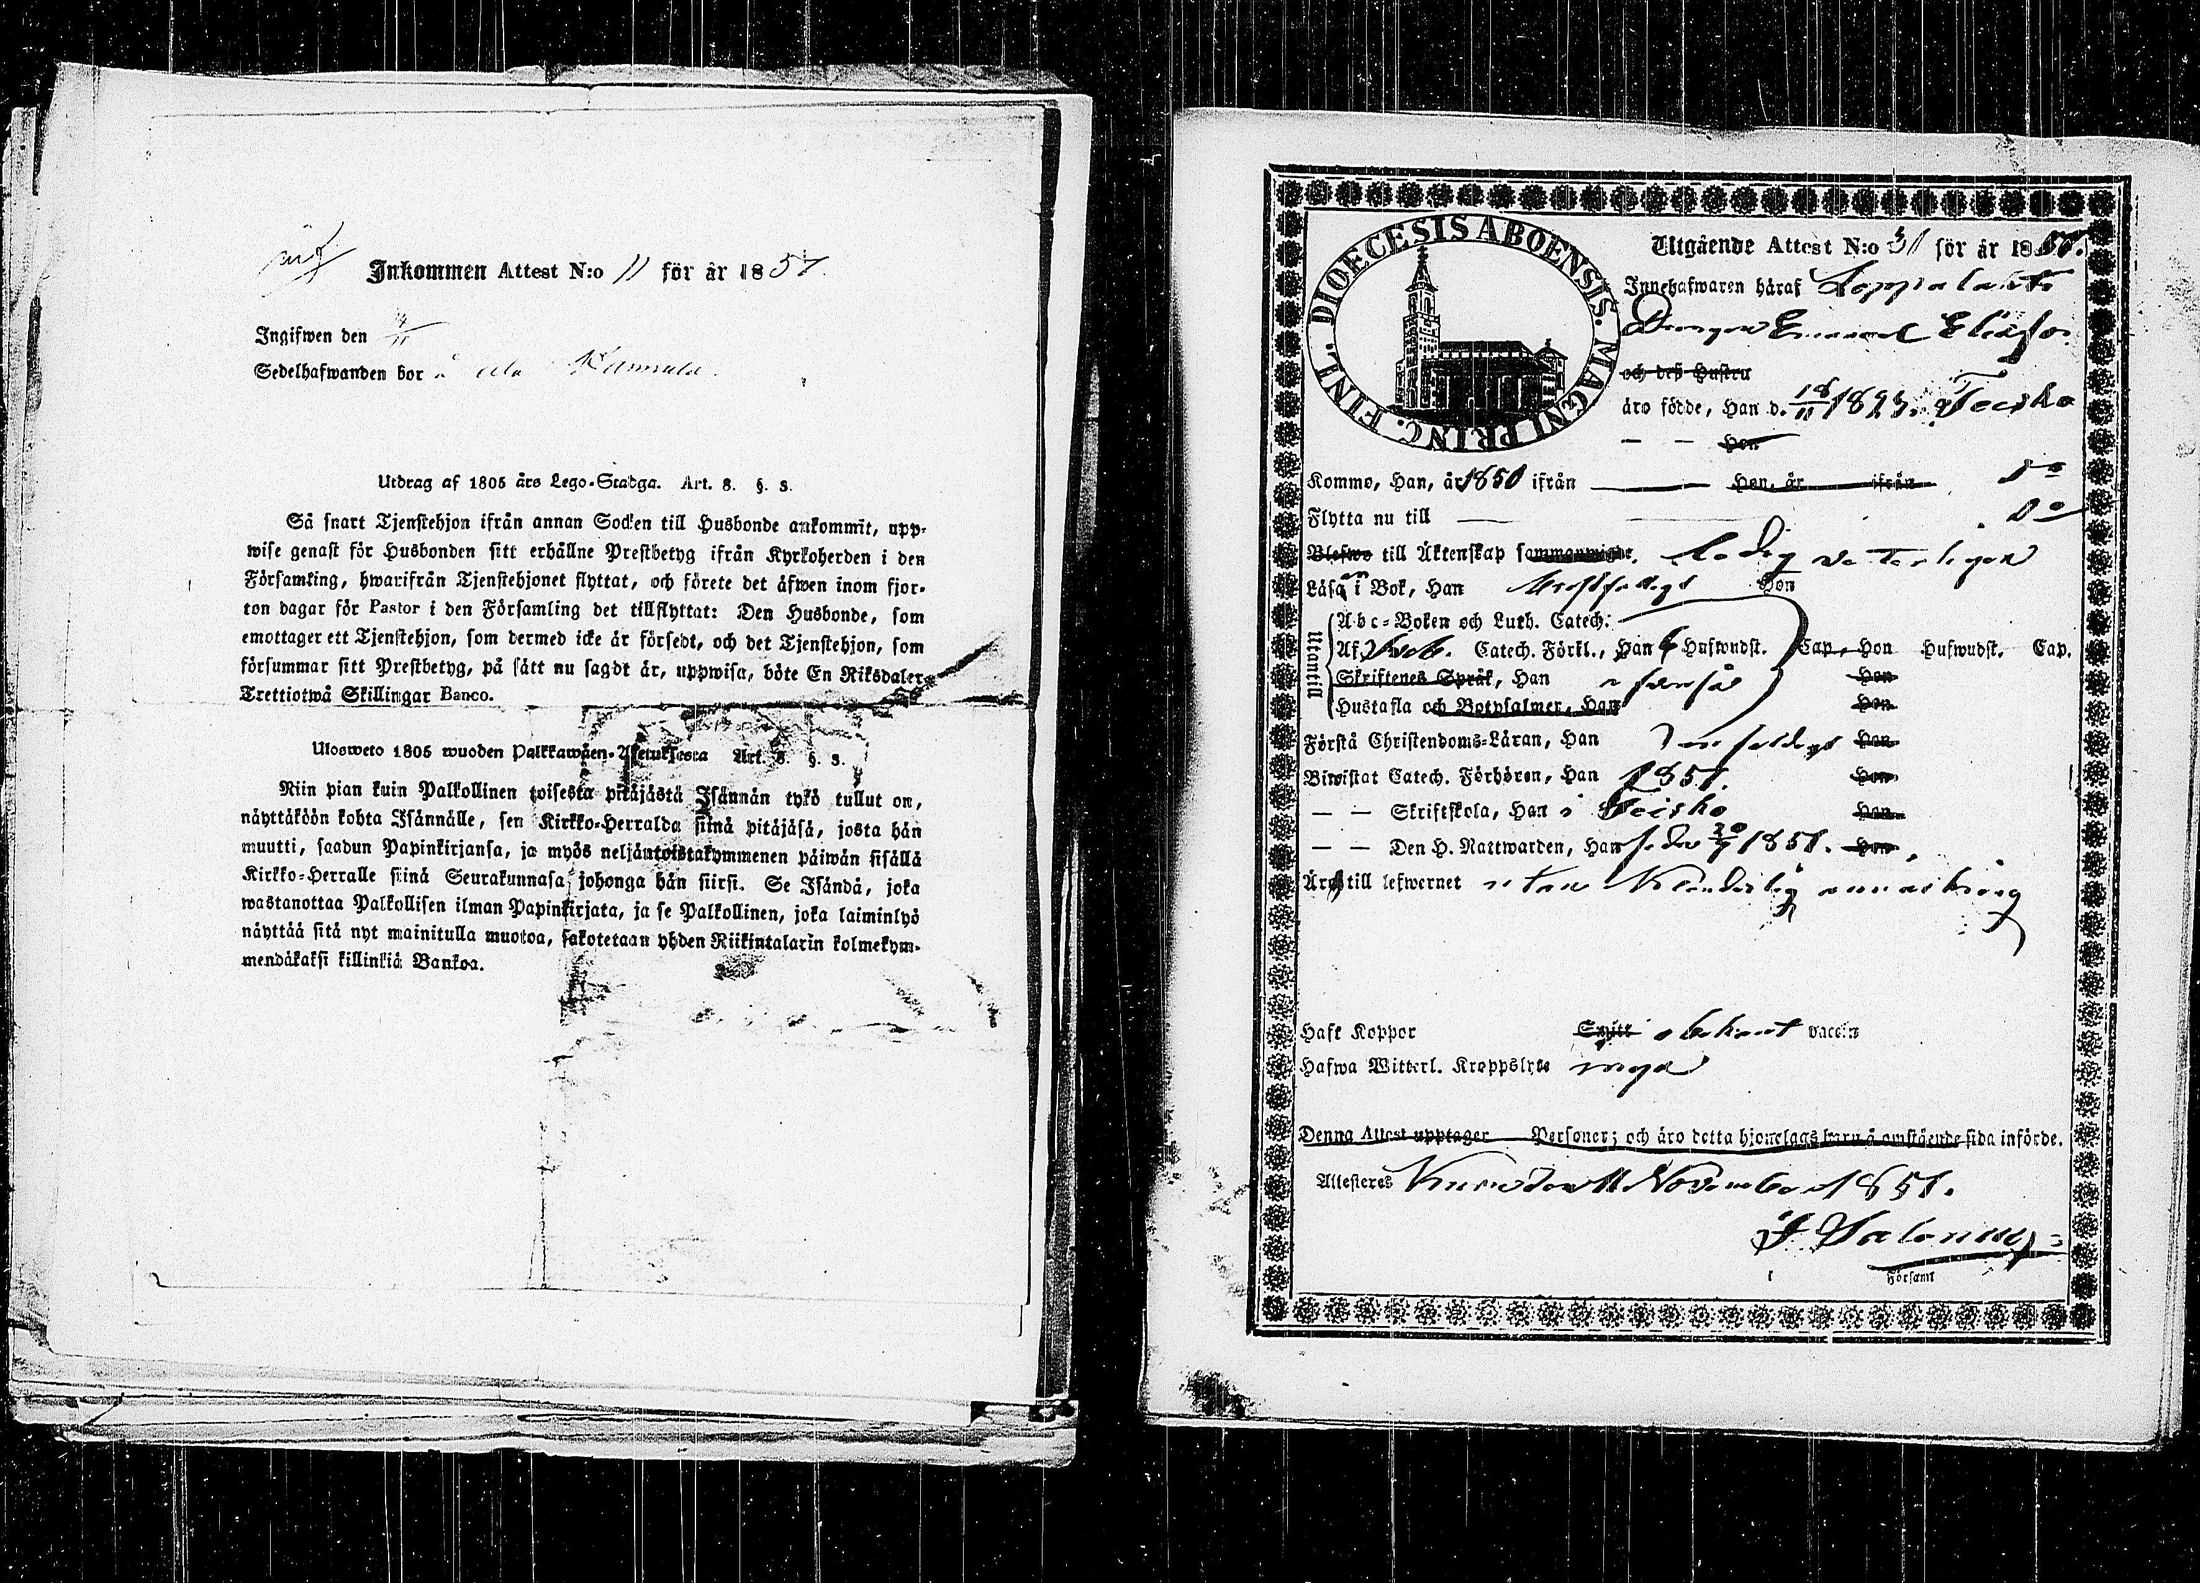 Inkommen Attest N:o 11 för år 1851.
Ingifwen den 14/11
Sedelhafwanden bor å Ala
Utdrag af 1805 års Lego-Stadga. Art. 8. §. 3.
Så snart Tjenstehjon ifrån annan Socken till Husbonde ankommit, upp-
wise genast för Husbonden sitt erhållne Prestbetyg ifrån Kyrkoherden i den
Församling, hwarifrån Tjenstehjonet flyttat, och förete det äfwen inom fjor-
ton dagar för Pastor i den Församling det tillflyttat: Den Husbonde, som
emottager ett Tjenstehjon, som dermed icke är försedt, och det Tjenstehjon, som
försummar sitt Prestbetyg, på sätt nu sagdt är, uppwisa, böte En Riksdaler
Trettiotwå Skillingar Banco.
Ulosweto 1805 wuoden Palkkawäen-Asetuksesta Art. 8. §. 3.
Niin pian kuin Palkollinen toisesta pitäjästä Isännän tykö tullut on,
näyttäköön kohta Isännälle, sen Kirkko-Herralda siinä pitäjäsä, josta hän
muutti, saadun Papinkirjansa, ja myös neljäntoistakymmenen päiwän sisällä
Kirkko-Herralle siinä Seurakunnasa johonga hän siirsi. Se Isändä, joka
wastanottaa Palkollisen ilman Papinkirjata, ja se Palkollinen, joka laiminlyö
näyttää sitä nyt mainitulla muotoa, sakotetaan yhden Riikintalarin kolmekym-
mendäkaksi killinkiä Bankoa.
DIOECESIS ABOENSIS. MAGNI PRINC. FINL.
Utgående Attest N:o 31 för år 1851.
Innehafwaren häraf
Drengen Emanuel Eliasson
och deß Hustru
äro födde, Han d. 18/11 1823. Teisko
— — Hon
Kommo, Han, år 1850 ifrån Hon, år ifrån D:o
Flytta nu till D:o
Blefwo till Äktenskap sammanwigde. Ledig
Läsa i Bok, Han Hon
Utantill
Abc-Boken och Luth. Catech:
Af Sveb. Catech. Förkl., Han 6 Hufwudst. Cap, Hon Hufwudst. Cap.
Skriftenes Språk, Han Hon
Hustafla och Botpsalmer, Han Hon
Förstå Christendoms-Läran, Han Hon
Biwistat Catech. Förhören, Han 1851. Hon
— — Skriftskola, Han i Teisko Hon
— — Den H. Nattwarden, Han 1851. Hon
Äro till lefwernet utan anmärkning
Haft Koppor vaccin
Hafwa Witterl. Kroppslyte inga
Denna Attest upptager Personer; och äro detta hjonelags barn å omstående sida införde.
Attesteres Kuru den 11 November 1851.
Församl